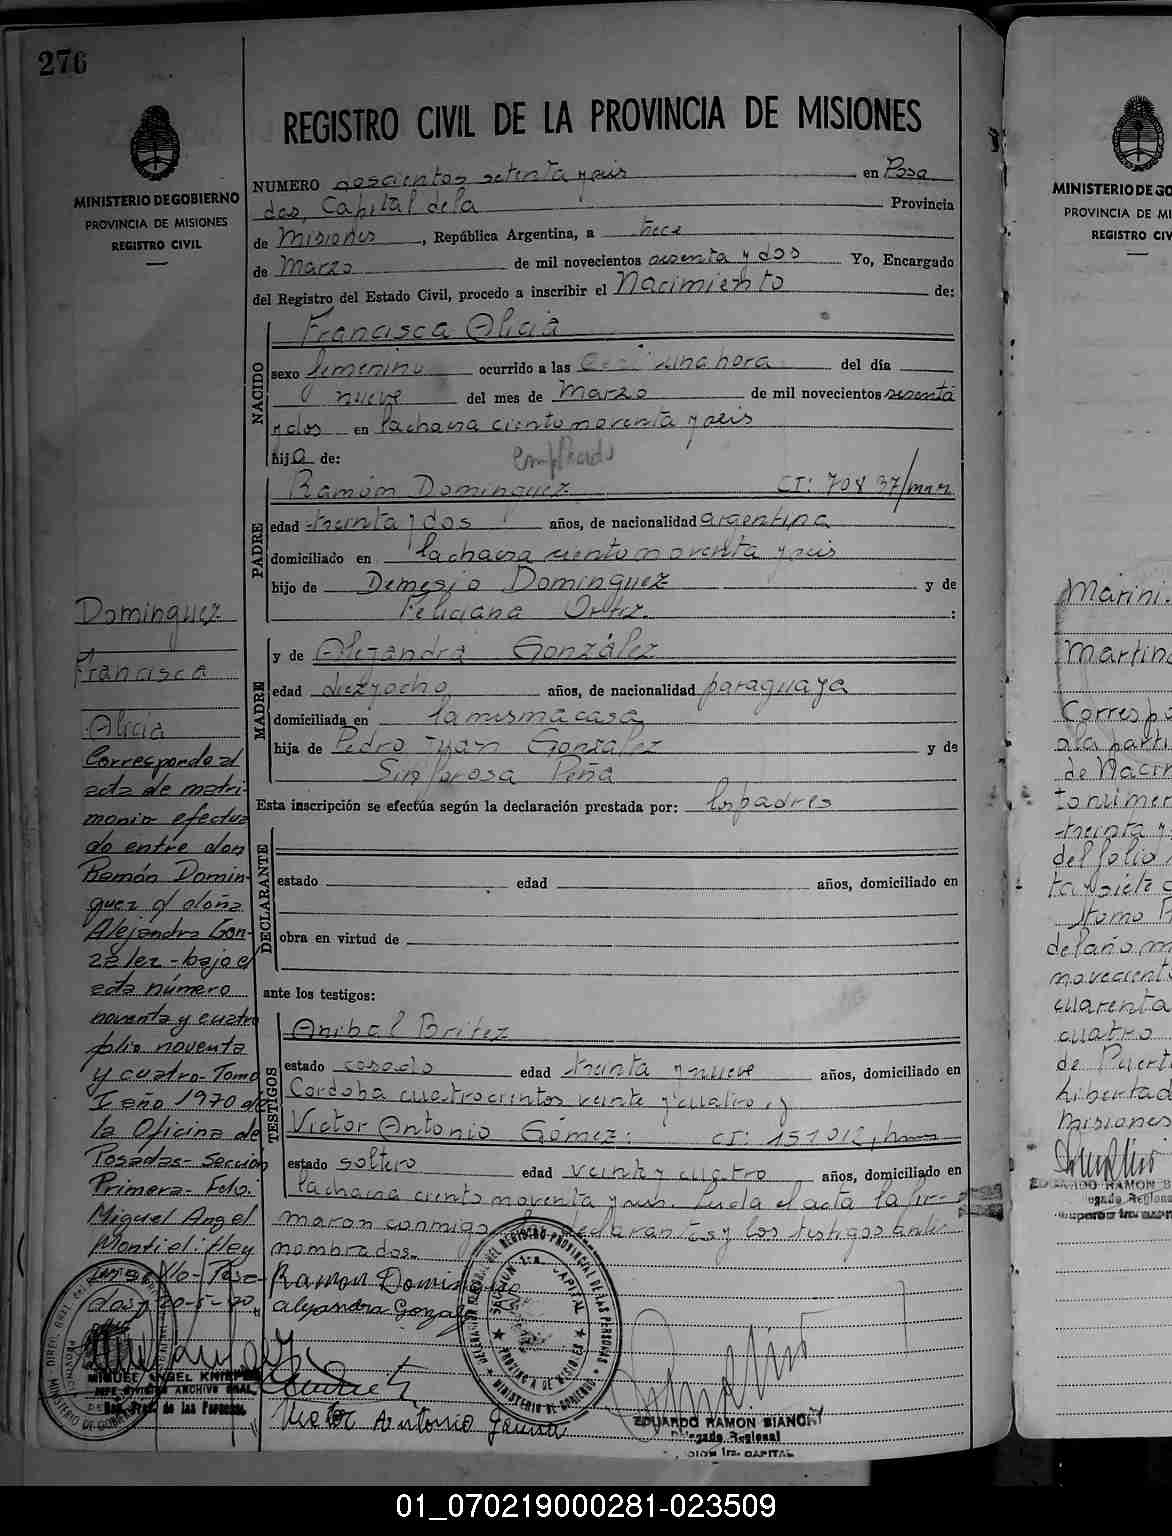 276
MINISTERIO DE GOBIERNO
PROVINCIA DE MISIONES
REGISTRO CIVIL
REGISTRO CIVIL DE LA PROVINCIA DE MISIONES
NUMERO doscientos setenta y seis en Posa
das, Capital de la Provincia
de Misiones, República Argentina, a trece
de Marzo de mil novecientos sesenta y dos Yo, Encargado
del Registro del Estado Civil, procedo a inscribir el Nacimiento de:
NACIDO
Francisca Alicia
sexo femenino ocurrido a las una hora del día
nueve del mes de Marzo de mil novecientos sesenta
y dos en la chacra ciento noventa y seis
hija de:
empleado
PADRE
Ramón Dominguez CI: 70837/mnes
edad treinta y dos años, de nacionalidad argentina
domiciliado en la chacra ciento noventa y seis
hijo de Demesio Dominguez y de
Feliciana Ortiz. :
MADRE
y de Alejandra González
edad dieziocho años, de nacionalidad paraguaya
domiciliada en la misma casa
hija de Pedro Juan González y de
Sinforosa Peña
Esta inscripción se efectúa según la declaración prestada por: los padres
DECLARANTE
estado edad años, domiciliado en
obra en virtud de
ante los testigos:
TESTIGOS
Anibal Britez
estado casado edad treinta y nueve años, domiciliado en
Cordoba cuatrocientos veinte y cuatro, y
Victor Antonio Gómez: CI: 151012,
estado soltero edad veinte y cuatro años, domiciliado en
la chacra ciento noventa y seis. Leida el acta la fir-
maron conmigo, declarantes y los testigos ante
nombrados.
Ramon Dominguez
Alejandra Gonzalez
Victor Antonio
EDUARDO RAMON BIANCHY
Delegado Regional
1ra. CAPITAL
Dominguez
Francisca
Alicia
Corresponde al
acta de matri-
monio efectua
do entre don
Ramón Domin-
guez y doña
Alejandra Gon-
zalez - bajo el
acta número
noventa y cuatro
folio noventa
y cuatro - Tomo
I año 1970 de
la Oficina de
Posadas - Sección
Primera - Fdo:
Miguel Angel
Montiel: Hay
un sello - Posa-
das, 20-5-70
MIGUEL ANGEL
JEFE DIVISION ARCHIVO GRAL.
de las Personas
DELEGACION REGISTRO PROVINCIAL DE LAS PERSONAS
SECCION 1ra. CAPITAL
PROVINCIA DE MISIONES
MINISTERIO DE GOBIERNO
MINISTERIO DE GO
PROVINCIA DE MI
REGISTRO CIV
Marini.
Martina
Correspo
a la parti
de Nacim
to número
treinta y
del folio
ta y siete
tomo P
del año m
novecient
cuarenta
cuatro
de Puert
Libertad
Misiones
EDUARDO RAMON B
01_070219000281-023509